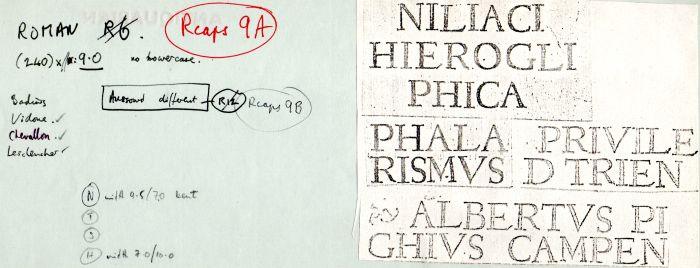 ROMAN R6. Rcaps 9A
(240) x 9.0 no lowercase.
Badius
Vidoue
Chevallon
Lescluncher
Ausound different R12 Rcaps 9B
N with 9.5/7.0 kent
T
S
H with 7.0/10.0
NILIACI
HIEROGLI
PHICA
PHALA PRIVILE
RISMVS D TRIEN
ALBERTVS PI
GHIVS CAMPEN